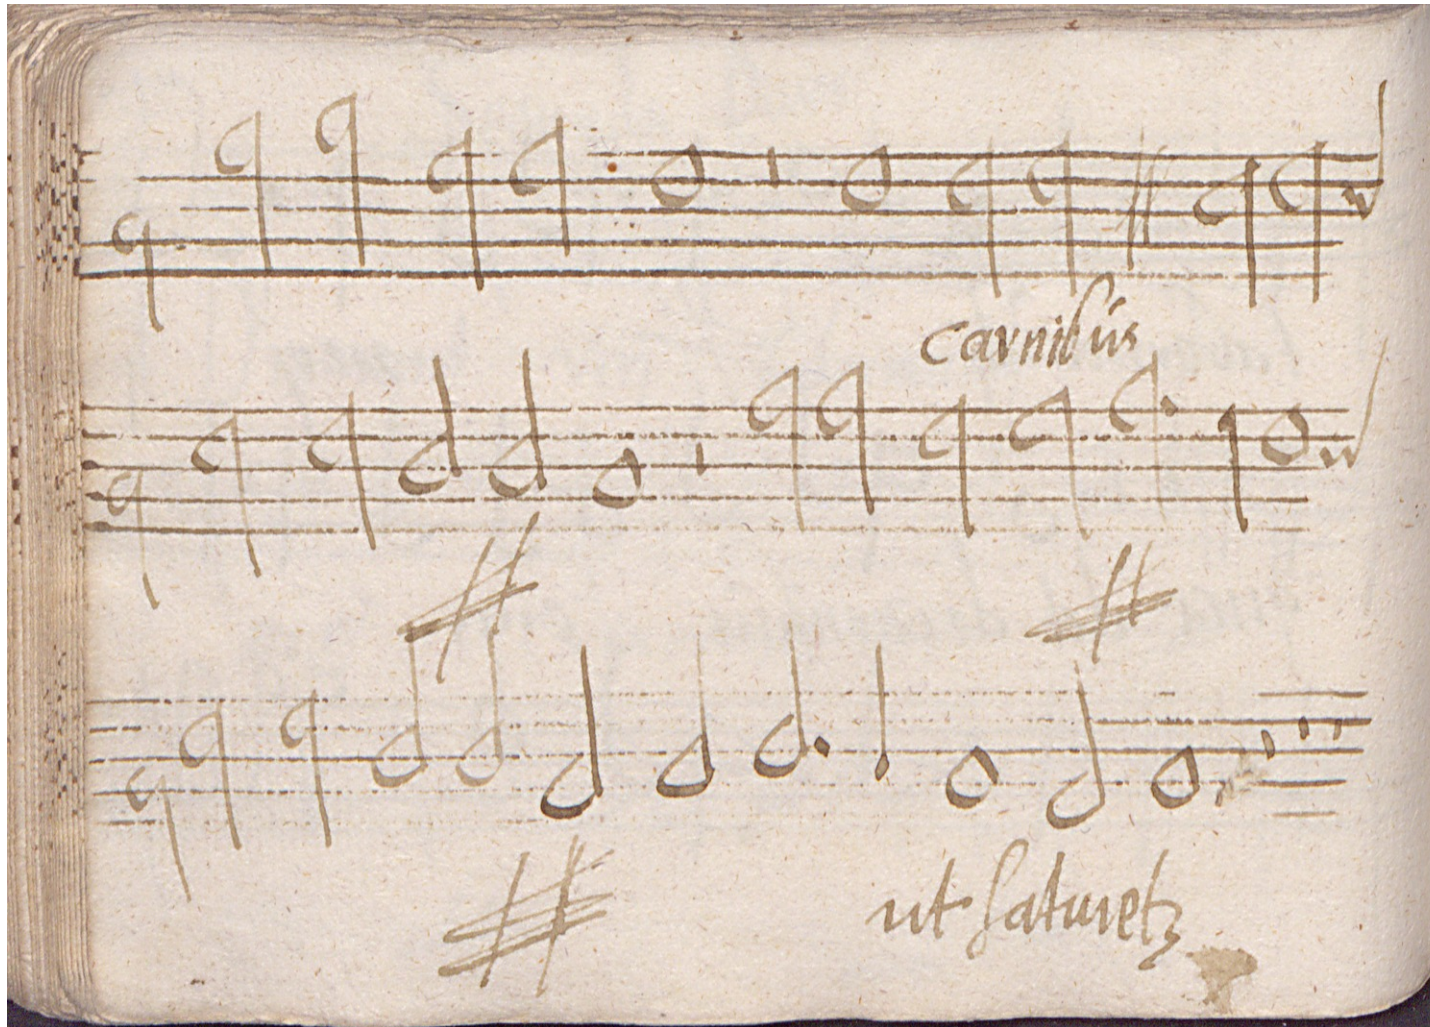 carnibus
ut saturetz